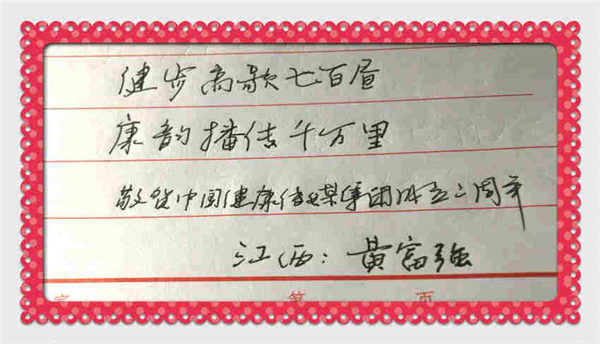 健步高歌七百昼
康韵播传千万里
敬贺中国健康传媒集团成立二周年
江西：黄富强
第 页